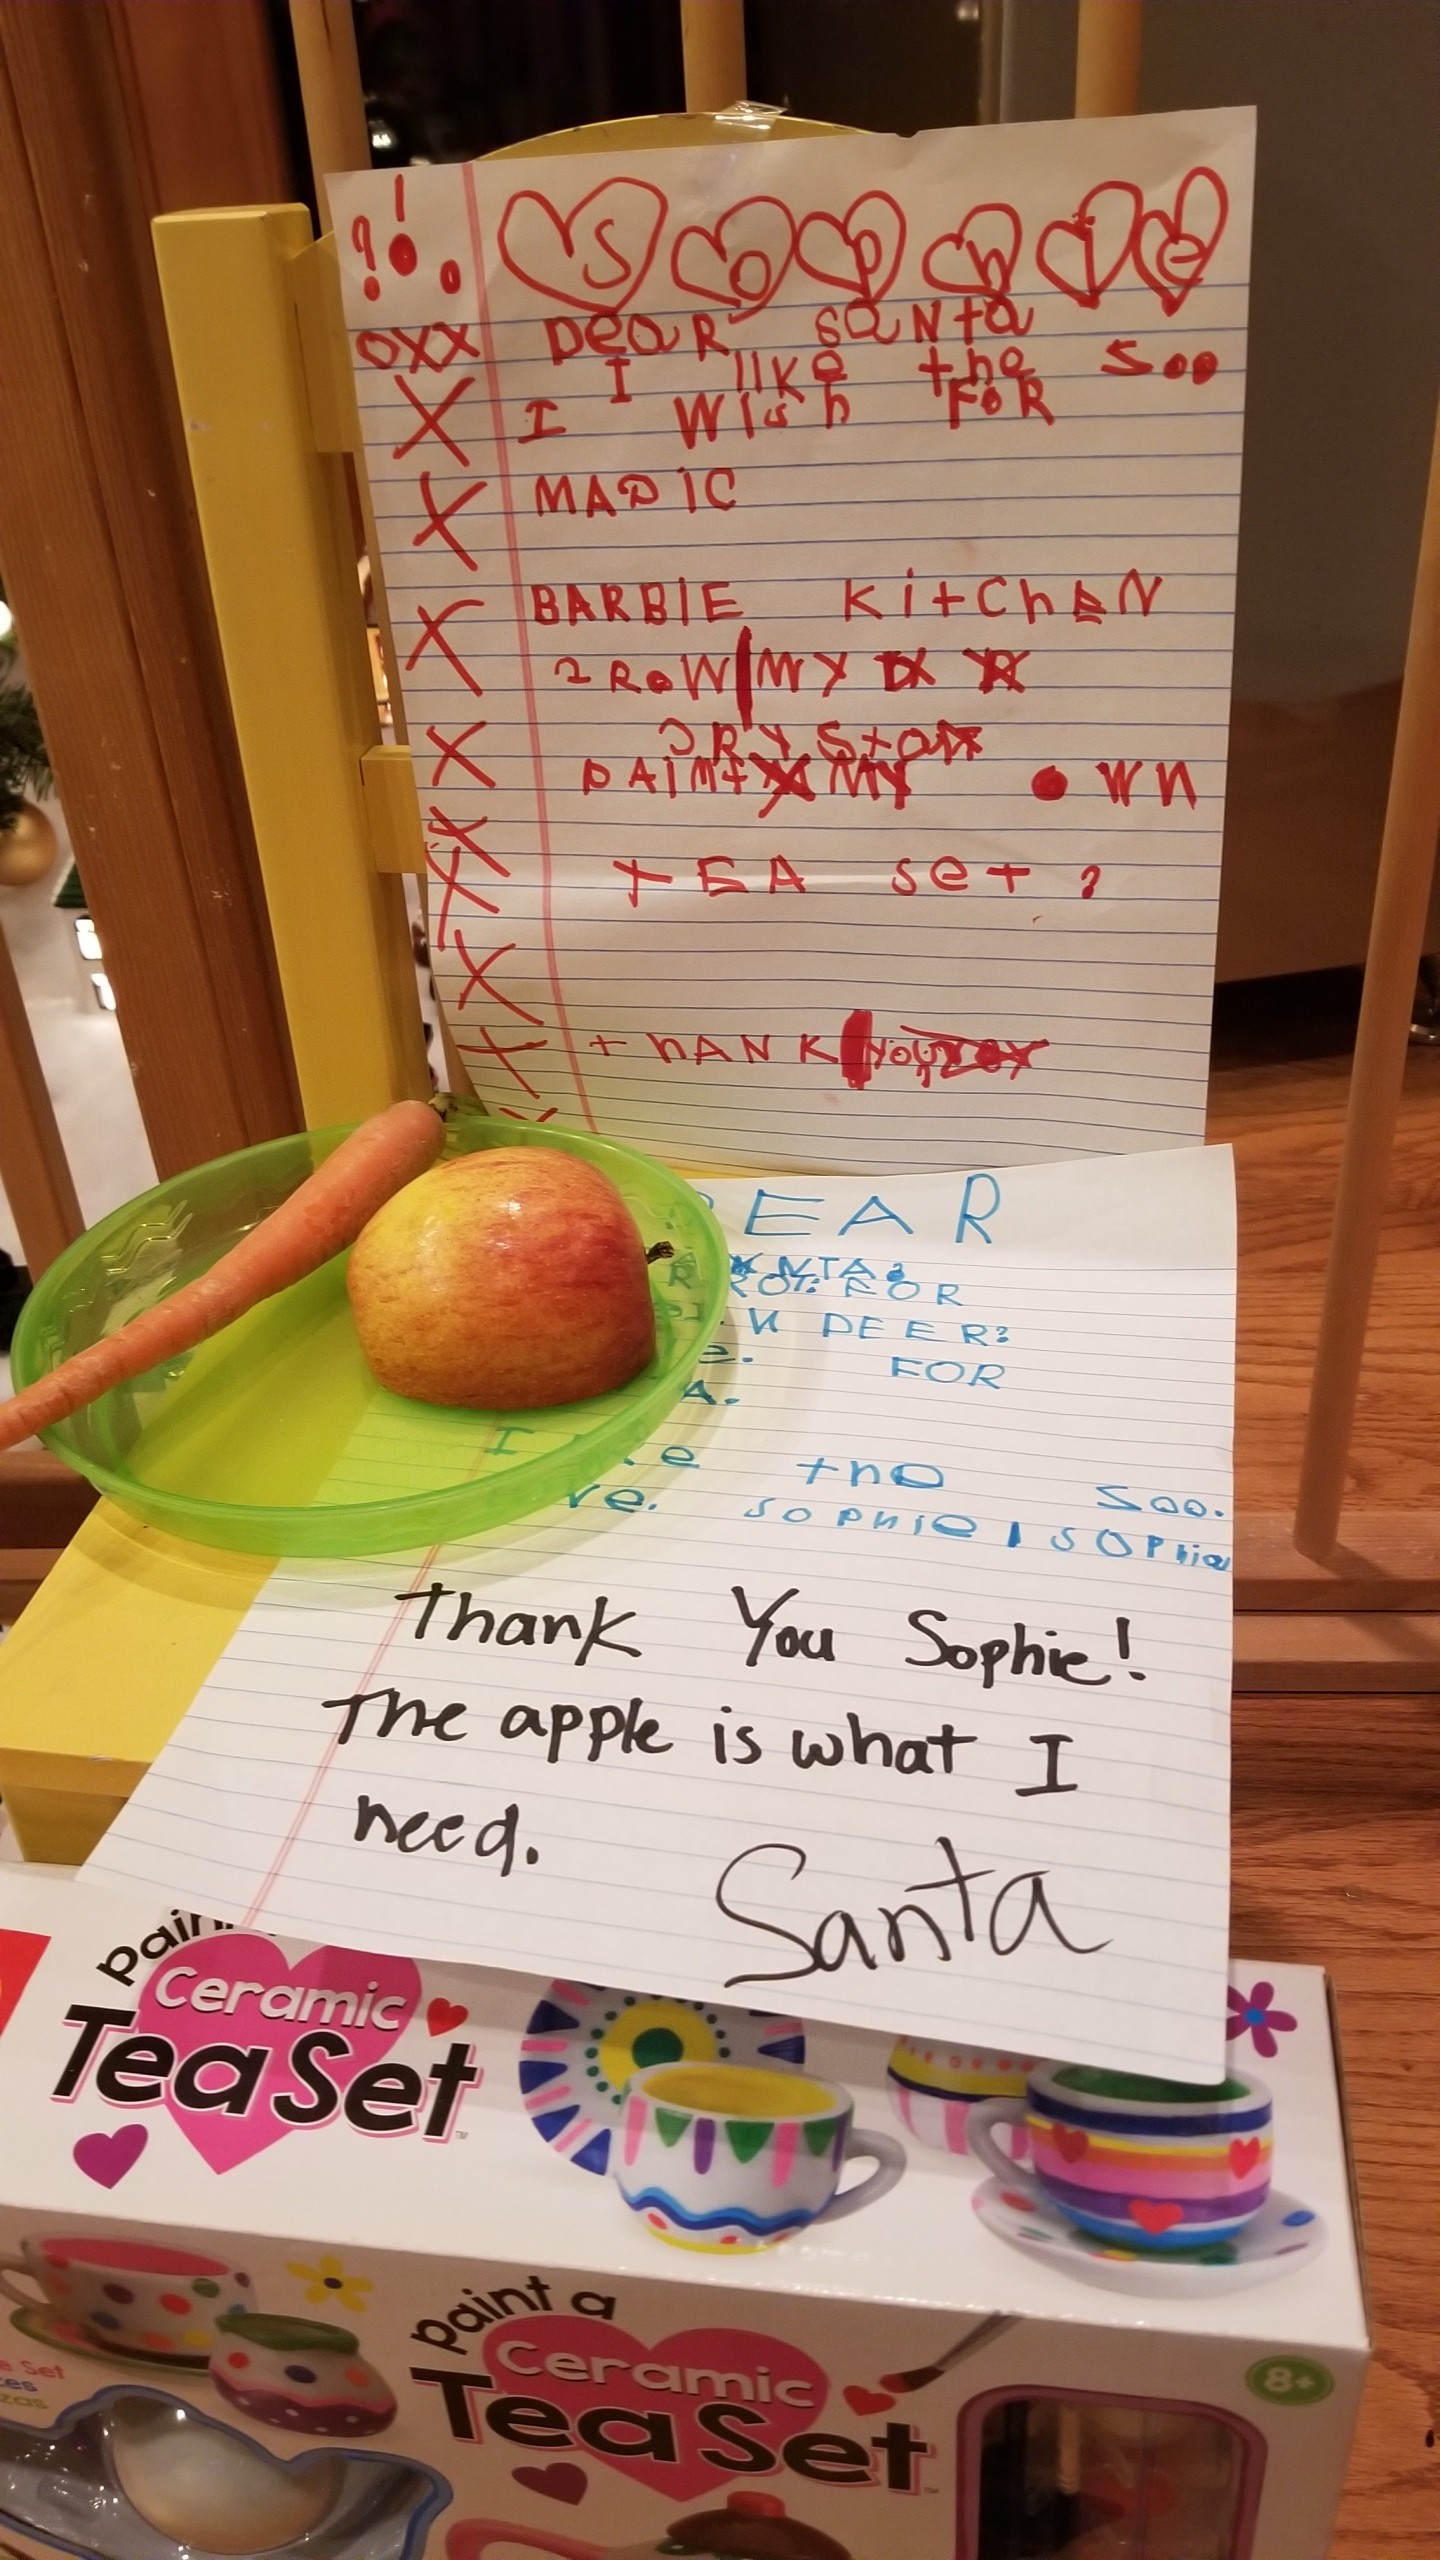 ?!.
SOPhie
OXX DeaR SaNta
I like the Soo
I Wish FOR
MADIC
BARBIE KitChEN
2 RoW MY
DRYStal
PAINt MY OWN
tEA Set ?
tHANK you
DEAR
NTA?
ROT. FOR
DEER?
e. FOR
A.
I ke the Soo.
ve. Sophie Sophia
Thank You Sophie!
The apple is what I
need.
Santa
Ceramic
Tea Set
™
paint a
Ceramic
Tea Set
™
8+
e Set
tes
zas